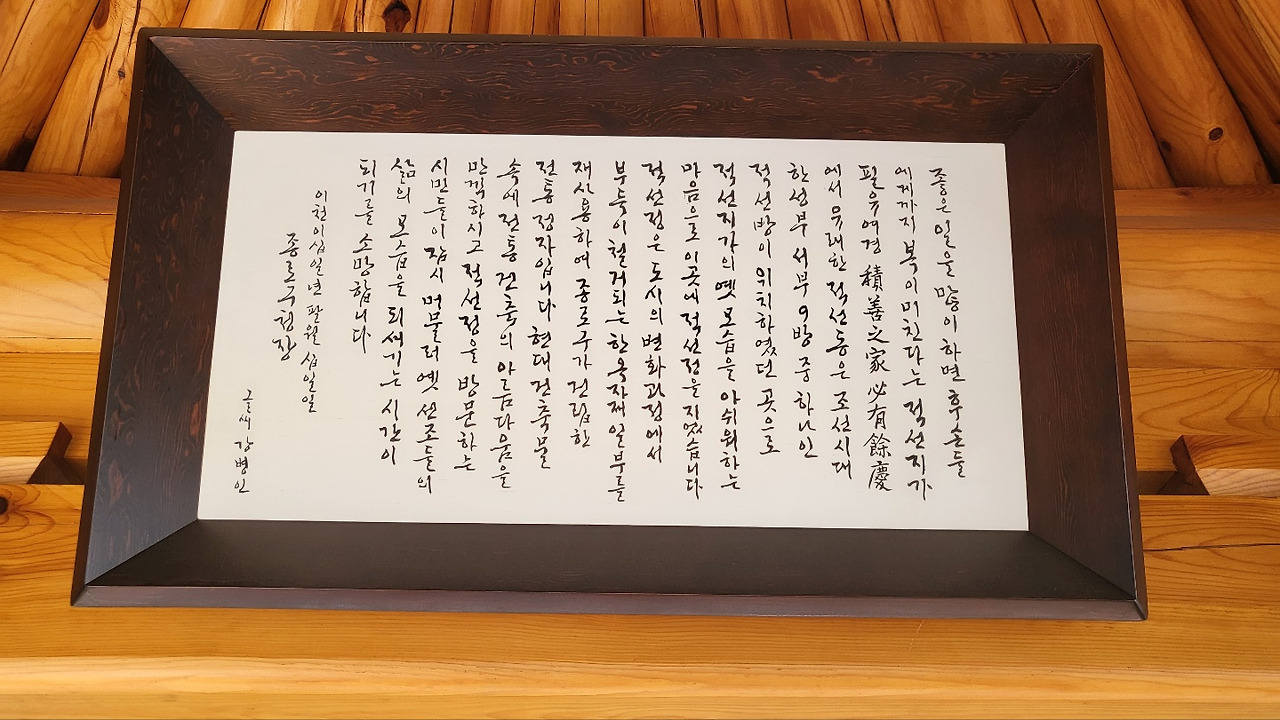 좋은 일을 많이 하면 후손들
에게까지 복이 미친다는 적선지가
필유여경 積善之家 必有餘慶
에서 유래한 적선동은 조선시대
한성부 서부 9방 중 하나인
적선방이 위치하였던 곳으로
적선지가의 옛 모습을 아쉬워하는
마음으로 이곳에 적선정을 지었습니다
적선정은 도시의 변화과정에서
부득이 철거되는 한옥자재 일부를
재사용하여 종로구가 건립한
전통정자입니다 현대 건축물
속에 전통 건축의 아름다움을
만끽하시고 적선정을 방문하는
시민들이 잠시 머물러 옛 선조들의
삶의 모습을 되새기는 시간이
되기를 소망합니다
이천이십일년 팔월 십일일
종로구청장
글씨 강병인